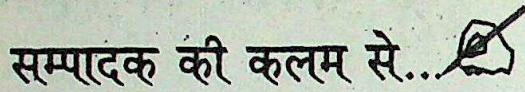 सम्पादक की कलम से...